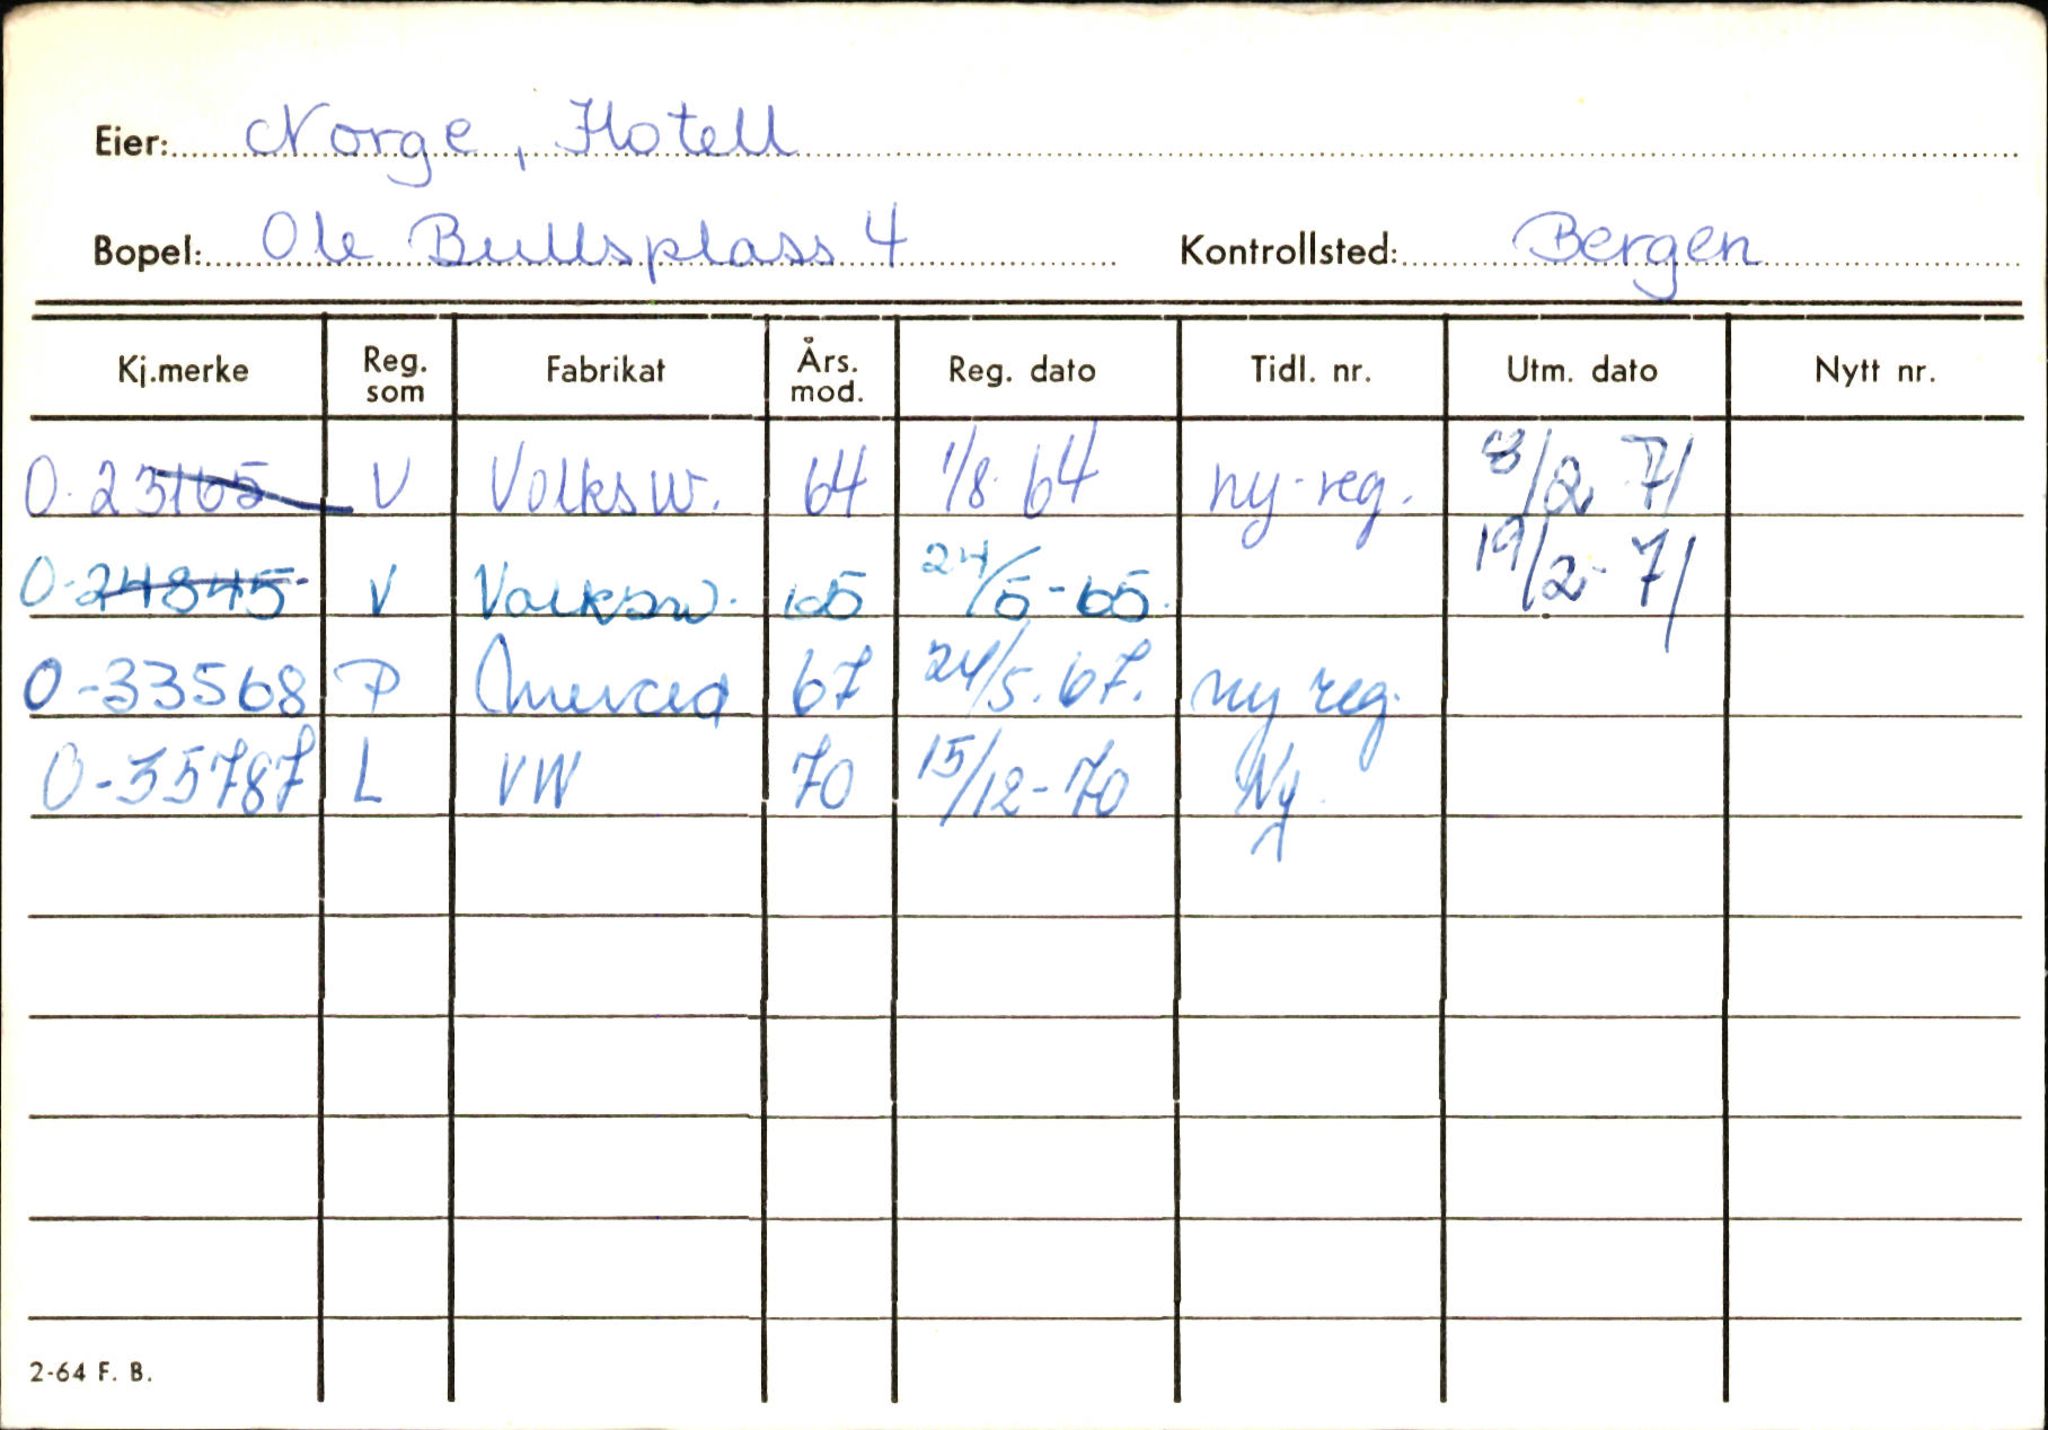 Eier: Norge, Hotell
Bopel: Ole Bullsplass 4 Kontrollsted: Bergen
Kj.merke Reg. som Fabrikat Års. mod. Reg. dato Tidl. nr. Utm. dato Nytt nr.
O-23165 V Volksw. 64 1/8 64 ny-reg. 8/2 71
O-24845 V Volksw. 65 24/5-65. 19/2-71
O-33568 P Merced 67 24/5.67. ny reg.
O-35787 L VW 70 15/12-70 Ny
2-64 F. B.